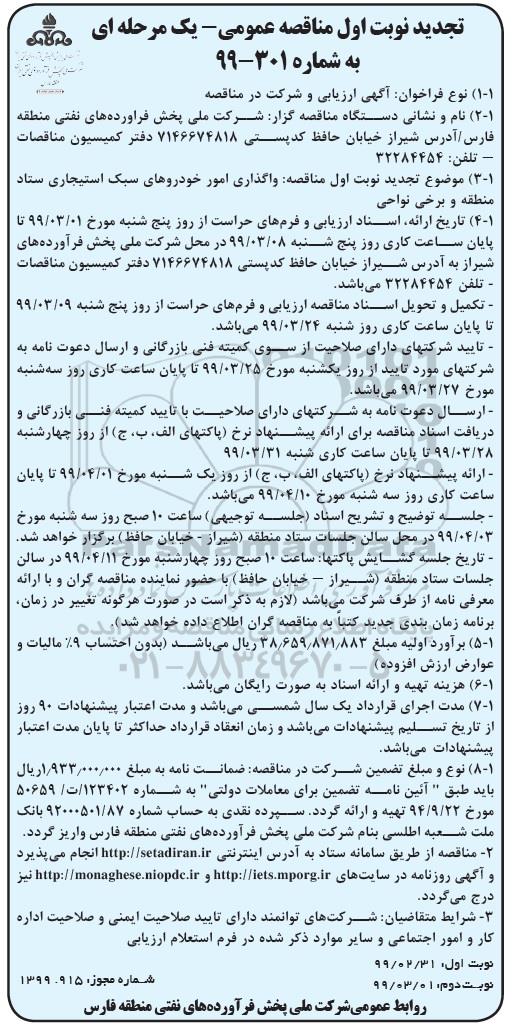 تجدید نوبت اول مناقصه عمومی- یک مرحله ای
به شماره ۳۰۱-۹۹
۱-۱) نوع فراخوان: آگهی ارزیابی و شرکت در مناقصه
۱-۲) نام و نشانی دستگاه مناقصه گزار: شرکت ملی پخش فراورده‌های نفتی منطقه
فارس/آدرس شیراز خیابان حافظ کدپستی ۷۱۴۶۶۷۴۸۱۸ دفتر کمیسیون مناقصات
– تلفن: ۳۲۲۸۴۴۵۴
۱-۳) موضوع تجدید نوبت اول مناقصه: واگذاری امور خودروهای سبک استیجاری ستاد
منطقه و برخی نواحی
۱-۴) تاریخ ارائه، اسناد ارزیابی و فرم‌های حراست از روز پنج شنبه مورخ ۹۹/۰۳/۰۱ تا
پایان ساعت کاری روز پنج شنبه ۹۹/۰۳/۰۸ در محل شرکت ملی پخش فرآورده‌های
شیراز به آدرس شیراز خیابان حافظ کدپستی ۷۱۴۶۶۷۴۸۱۸ دفتر کمیسیون مناقصات
- تلفن ۳۲۲۸۴۴۵۴ می‌باشد.
- تکمیل و تحویل اسناد مناقصه ارزیابی و فرم‌های حراست از روز پنج شنبه ۹۹/۰۳/۰۹
تا پایان ساعت کاری روز شنبه ۹۹/۰۳/۲۴ می‌باشد.
- تایید شرکتهای دارای صلاحیت از سوی کمیته فنی بازرگانی و ارسال دعوت نامه به
شرکتهای مورد تایید از روز یکشنبه مورخ ۹۹/۰۳/۲۵ تا پایان ساعت کاری روز سه‌شنبه
مورخ ۹۹/۰۳/۲۷ می‌باشد.
- ارسال دعوت نامه به شرکتهای دارای صلاحیت با تایید کمیته فنی بازرگانی و
دریافت اسناد مناقصه برای ارائه پیشنهاد نرخ (پاکتهای الف، ب، ج) از روز چهارشنبه
۹۹/۰۳/۲۸ تا پایان ساعت کاری شنبه ۹۹/۰۳/۳۱
- ارائه پیشنهاد نرخ (پاکتهای الف، ب، ج) از روز یک شنبه مورخ ۹۹/۰۴/۰۱ تا پایان
ساعت کاری روز سه شنبه مورخ ۹۹/۰۴/۱۰ می‌باشد.
- جلسه توضیح و تشریح اسناد (جلسه توجیهی) ساعت ۱۰ صبح روز سه شنبه مورخ
۹۹/۰۴/۰۳ در محل سالن جلسات ستاد منطقه (شیراز - خیابان حافظ) برگزار خواهد شد.
- تاریخ جلسه گشایش پاکتها: ساعت ۱۰ صبح روز چهارشنبه مورخ ۹۹/۰۴/۱۱ در سالن
جلسات ستاد منطقه (شیراز – خیابان حافظ) با حضور نماینده مناقصه گران و با ارائه
معرفی نامه از طرف شرکت می‌باشد (لازم به ذکر است در صورت هرگونه تغییر در زمان،
برنامه زمان بندی جدید کتباً به مناقصه گران اطلاع داده خواهد شد).
۱-۵) برآورد اولیه مبلغ ۳۸,۶۵۹,۸۷۱,۸۸۳ ریال می‌باشد (بدون احتساب ۹٪ مالیات و
عوارض ارزش افزوده)
۱-۶) هزینه تهیه و ارائه اسناد به صورت رایگان می‌باشد.
۱-۷) مدت اجرای قرارداد یک سال شمسی می‌باشد و مدت اعتبار پیشنهادات ۹۰ روز
از تاریخ تسلیم پیشنهادات می‌باشد و زمان انعقاد قرارداد حداکثر تا پایان مدت اعتبار
پیشنهادات می‌باشد.
۱-۸) نوع و مبلغ تضمین شرکت در مناقصه: ضمانت نامه به مبلغ ۱,۹۳۳,۰۰۰,۰۰۰ریال
باید طبق " آئین نامه تضمین برای معاملات دولتی" به شماره ۱۲۳۴۰۲/ت/ ۵۰۶۵۹
مورخ ۹۴/۹/۲۲ تهیه و ارائه گردد. سپرده نقدی به حساب شماره ۹۲۰۰۰۵۰۱/۸۷ بانک
ملت شعبه اطلسی بنام شرکت ملی پخش فرآورده‌های نفتی منطقه فارس واریز گردد.
۲- مناقصه از طریق سامانه ستاد به آدرس اینترنتی http://setadiran.ir انجام می‌پذیرد
و آگهی روزنامه در سایت‌های http://iets.mporg.ir و http://monaghese.niopdc.ir نیز
درج می‌گردد.
۳- شرایط متقاضیان: شرکت‌های توانمند دارای تایید صلاحیت ایمنی و صلاحیت اداره
کار و امور اجتماعی و سایر موارد ذکر شده در فرم استعلام ارزیابی
نوبت اول: ۹۹/۰۲/۳۱
نوبت‌دوم: ۹۹/۰۳/۰۱
شماره مجوز: ۹۱۵. ۱۳۹۹
روابط عمومی شرکت ملی پخش فرآورده‌های نفتی منطقه فارس